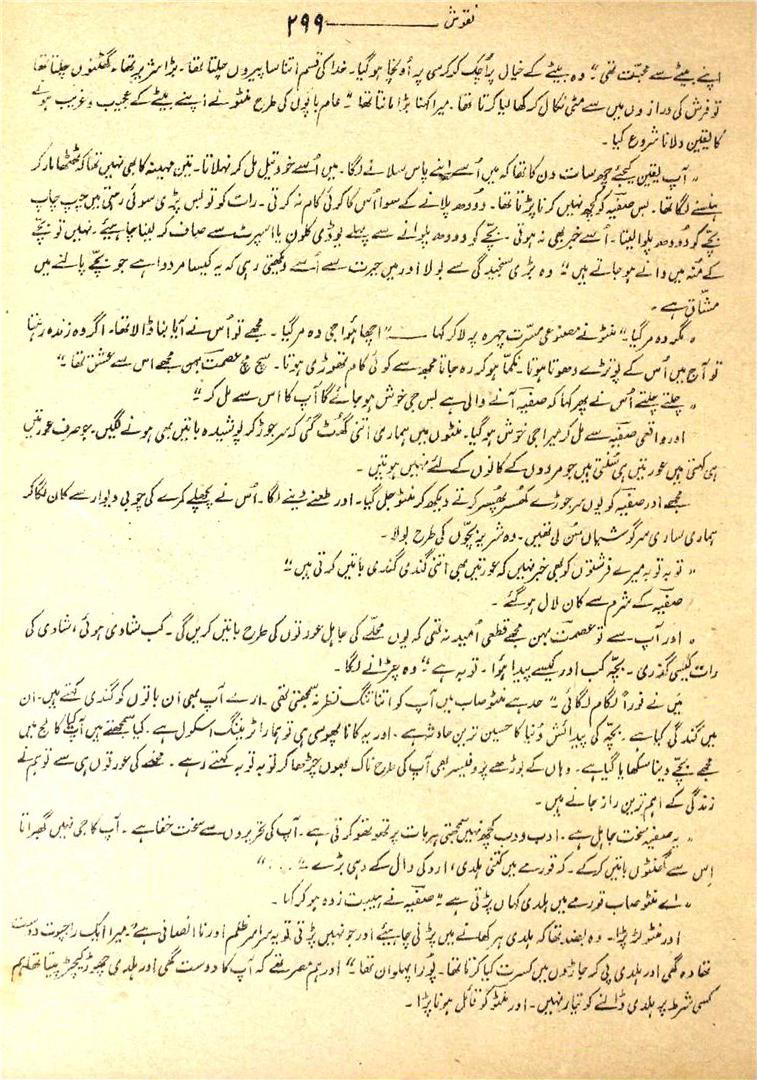 نقوش ــــــــــ ۲۹۹
اپنے بیٹے سے محبت تھی“ وہ بیٹے کے خیال پر اُچک کر کرسی پہ اونچا ہو گیا۔ خدا کی قسم اتنا سا پیروں چلتا تھا۔ بڑا شریر تھا۔ گھٹنوں چلتا تھا
تو فرش کی درازوں میں سے مٹی نکال کر کھا لیا کرتا تھا۔ میرا کہنا بڑا مانتا تھا“ عام باپوں کی طرح منٹو نے اپنے بیٹے کے عجیب و غریب ہونے
کا یقین دلانا شروع کیا۔
”آپ یقین کیجئے چھ سات دن کا تھا کہ میں اُسے اپنے پاس سلانے لگا۔ میں اُسے خود تیل مل کر نہلاتا۔ تین مہینہ کا بھی نہیں تھا کہ ٹھٹھا مار کر
ہنسنے لگا تھا۔ بس صفیہ کو کچھ نہیں کرنا پڑتا تھا۔ دودھ پلانے کے سوا اُس کا کوئی کام نہ کرتی۔ رات کو تو بس پڑی سوئی رہتی میں چپ چاپ
بچے کو دودھ پلوا لیتا۔ اُسے خبر بھی نہ ہوتی۔ بچے کو دودھ پلوانے سے پہلے یوڈی کلون یا اسپرٹ سے صاف کر لینا چاہیئے۔ نہیں تو بچے
کے منہ میں دانے ہو جاتے ہیں“ وہ بڑی سنجیدگی سے بولا اور میں حیرت سے اُسے دیکھتی رہی کہ یہ کیسا مردوا ہے جو بچے پالنے میں
مشّاق ہے۔
”مگر وہ مر گیا“ منٹو نے مصنوعی مسرت چہرہ پر لا کر کہا ـــــ ”اچھا ہوا جی وہ مر گیا۔ مجھے تو اُس نے آیا بنا ڈالا تھا۔ اگر وہ زندہ رہتا
تو آج میں اُس کے پوتڑے دھوتا ہوتا۔ نکمّا ہو کر رہ جاتا مجھ سے کوئی کام تھوڑی ہوتا۔ سچ مچ عصمت بہن مجھے اس سے عشق تھا“
”چلتے چلتے اُس نے پھر کہا کہ صفیہ آنے والی ہے بس جی خوش ہو جائے گا آپ کا اس سے مل کر“
اور واقعی صفیہ سے مل کر میرا جی خوش ہو گیا۔ منٹوں میں ہماری اتنی گھُٹ گئی کہ سر جوڑ کر پوشیدہ باتیں بھی ہونے لگیں۔ جو صرف عورتیں
ہی کہتی ہیں عورتیں ہی سنتی ہیں جو مردوں کے کانوں کے لئے نہیں ہوتیں۔
مجھے اور صفیہ کو یوں سر جوڑے کھُسر پھُسر کرتے دیکھ کر منٹو جل گیا۔ اور طعنے دینے لگا۔ اُس نے پچھلے کمرے کی چوبی دیوار سے کان لگا کر
ہماری ساری سرگوشیاں سُن لی تھیں۔ وہ شریر بچوں کی طرح بولا۔
”توبہ توبہ میرے فرشتوں کو بھی خبر نہیں کہ عورتیں بھی اتنی گندی گندی باتیں کرتی ہیں“
صفیہ کے شرم سے کان لال ہو گئے۔
”اور آپ سے تو عصمت بہن مجھے قطعی اُمید نہ تھی کہ یوں محلّے کی جاہل عورتوں کی طرح باتیں کریں گی۔ کب شادی ہوئی، شادی کی
رات کیسی گذری۔ بچہ کب اور کیسے پیدا ہوا۔ توبہ ہے“ وہ چڑانے لگا۔
میں نے فوراً لگام لگائی“ حد ہے منٹو صاحب میں آپ کو اتنا تنگ نظر نہ سمجھتی تھی۔ ارے آپ بھی ان باتوں کو گندی کہتے ہیں۔ ان
میں گندگی کیا ہے۔ بچہ کی پیدائش دُنیا کا حسین ترین حادثہ ہے۔ اور یہ کانا پھوسی ہی تو ہمارا ٹریننگ اسکول ہے۔ کیا سمجھتے ہیں آپ کیا کالج میں
مجھے بچے دینا سکھایا گیا ہے۔ وہاں کے بوڑھے پروفیسر بھی آپ کی طرح ناک بھوں چڑھا کر توبہ توبہ کہتے رہے۔ محلے کی عورتوں ہی سے تو ہم نے
زندگی کے اہم ترین راز جانے ہیں۔
”یہ صفیہ سخت جاہل ہے۔ ادب ودب کچھ نہیں سمجھتی ہر بات پر تھو تھو کرتی ہے۔ آپ کی تحریروں سے سخت خفا ہے۔ آپ کا جی نہیں گھبراتا
اِس سے گھنٹوں باتیں کر کے۔ کہ قورمے میں کتنی ہلدی، ارد کی دال کے دہی بڑے ـ . . .“
”اے منٹو صاب قورمے میں ہلدی کہاں پڑتی ہے“ صفیہ نے ہیبت زدہ ہو کر کہا۔
اور منٹو لڑ پڑا۔ وہ بضد تھا کہ ہلدی ہر کھانے میں پڑنی چاہیئے اور جو نہیں پڑتی تو یہ سراسر ظلم اور ناانصافی ہے“ میرا ایک راجپوت دوست
تھا وہ گھی اور ہلدی پی کر جاڑوں میں کسرت کیا کرتا تھا۔ پُورا پہلوان تھا“ اور ہم مصر تھے کہ آپ کا دوست گھی اور ہلدی چھوڑ کیچڑ پیتا تھا ہم
کسی شرط پر ہلدی ڈالنے کو تیار نہیں۔ اور منٹو کو قائل ہونا پڑا۔